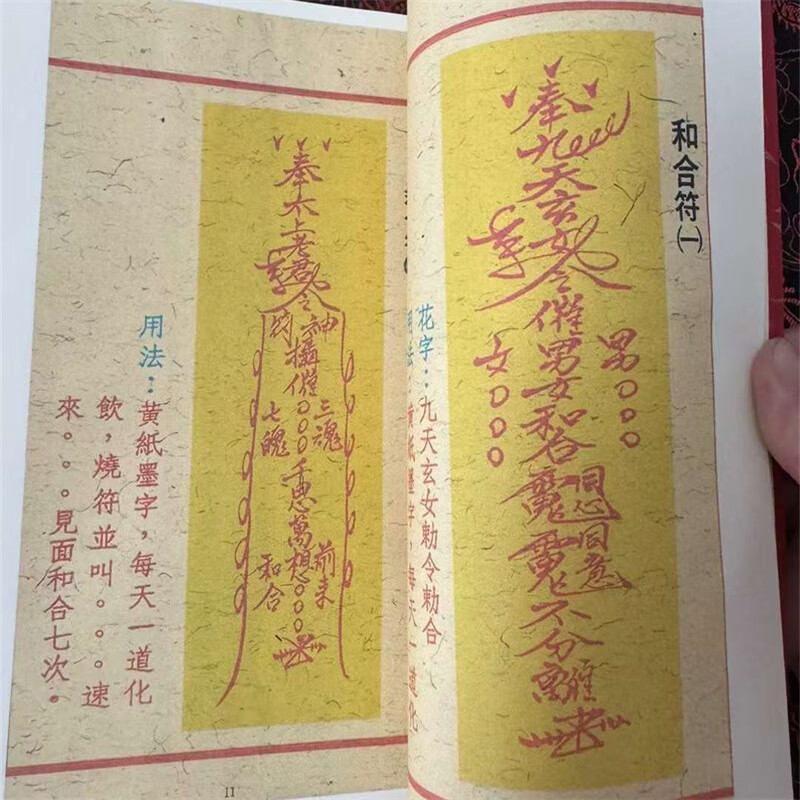 和合符(一)
奉九天玄女令
催男女和合
同心
同意
不分離
男○○○
女○○○
花字：九天玄女勅令勅合
用法：黃紙墨字，每天一道化
奉太上老君令
神符
攝催○○○
三魂
七魄
千思萬想○○○
前來
和合
用法：黃紙墨字，每天一道化
飲，燒符並叫。。。速
來。。。見面和合七次。
11